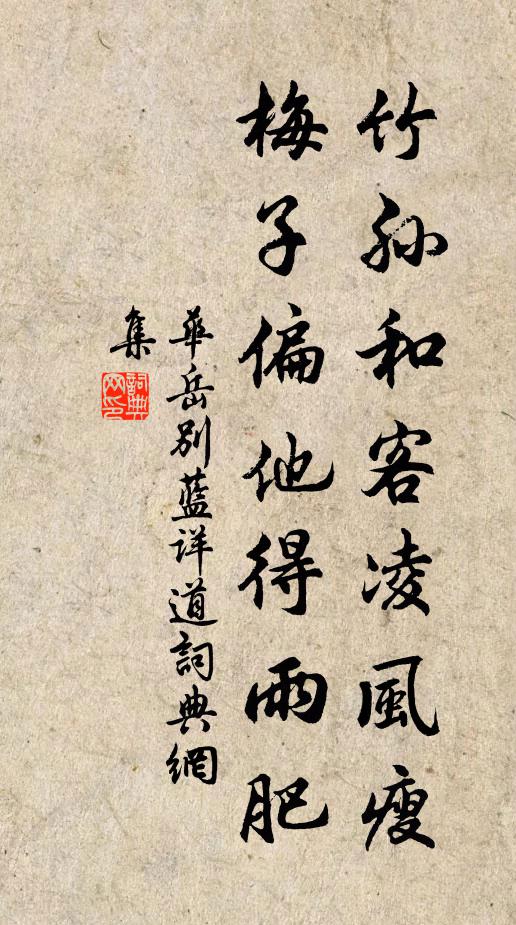 竹孙和客凌風瘦
梅子偏他得雨肥
華岳別藍詳道詞典網
集
詞典
网印